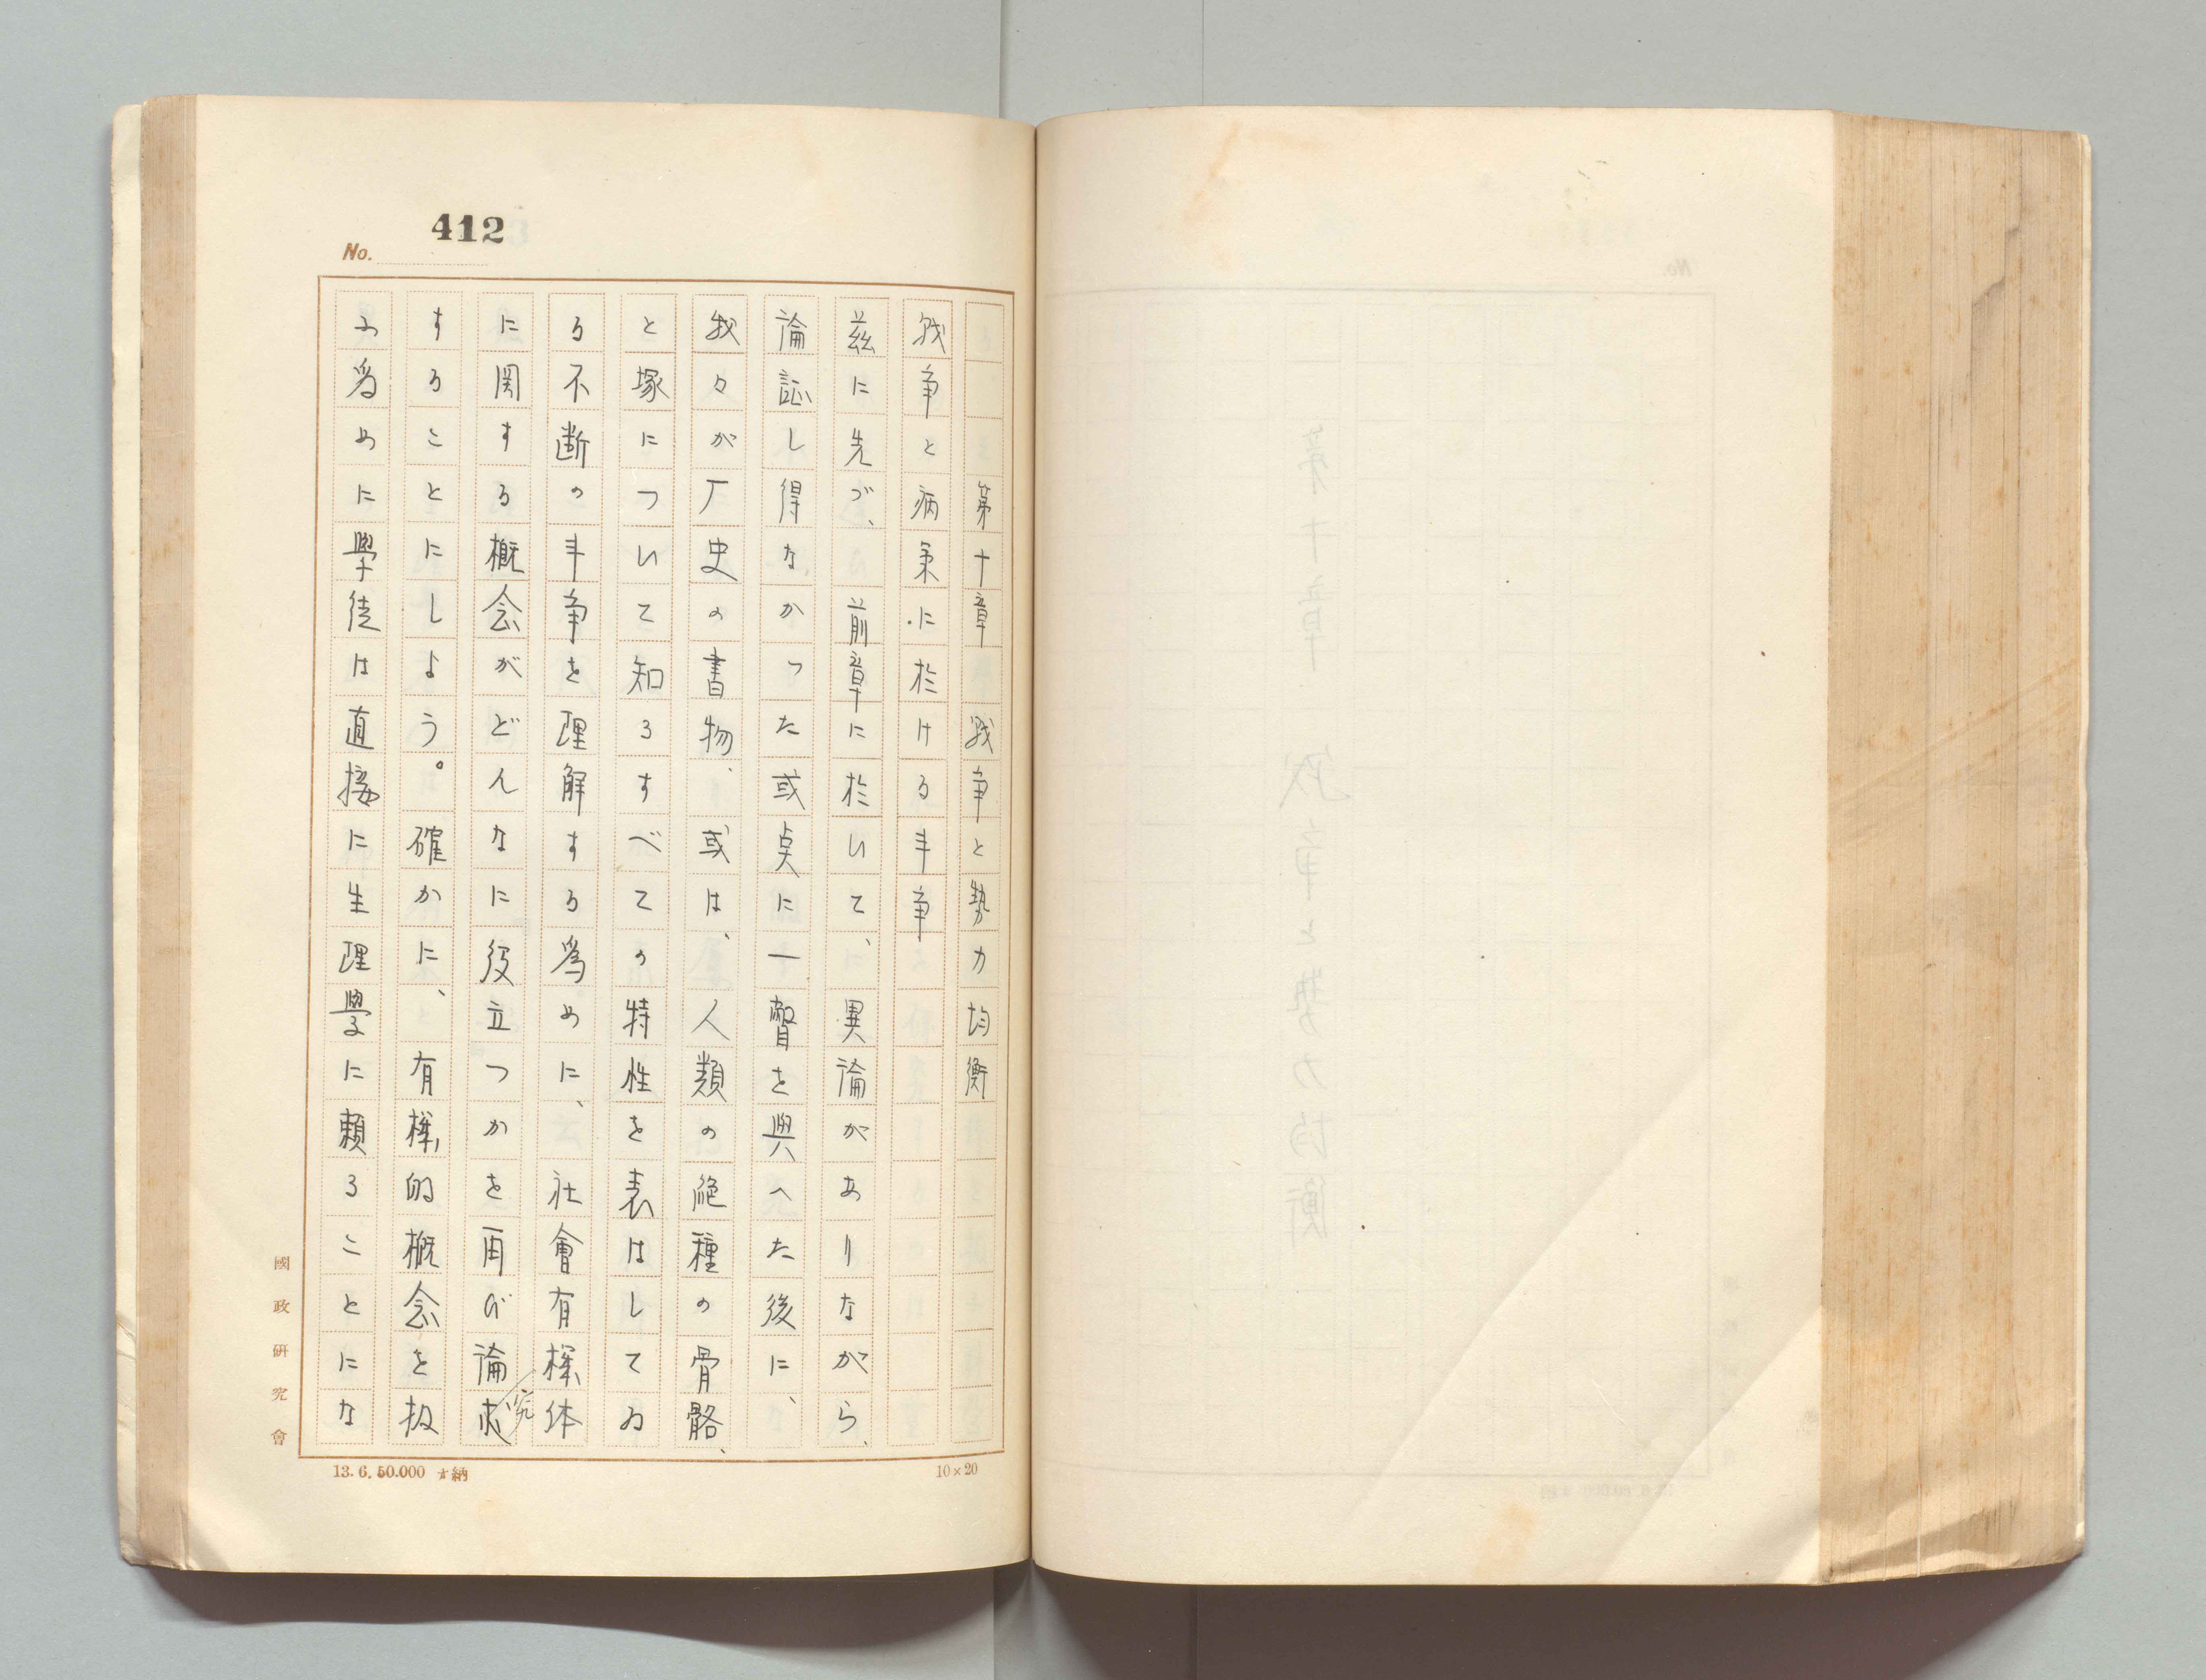 412
No.
第十章 戦争と勢力均衡
戦争と病に於ける斗争
茲に先づ、前章に於いて、異論がありながら、
論証し得なかつた或奌に一瞥を與へた後に、
我々が厂史の書物、或は、人類の絶種の骨骼、
と塚について知るすべての特性を表はしてゐ
る不断の斗争を理解する爲めに、社會有機体
に関する概念がどんなに役立つかを再び論究
することにしよう。確かに、有機的概念を扱
ふ爲めに學徒は直接に生理學に頼ることにな
國政研究會
13.6.50.000 納
10×20